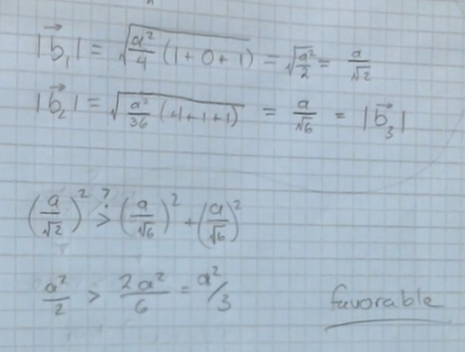 |b⃗₁| = √(a²/4 (1+0+1)) = √(a²/2) = a/√2
|b⃗₂| = √(a²/36 (4+1+1)) = a/√6 = |b⃗₃|
(a/√2)² >? (a/√6)² + (a/√6)²
a²/2 > 2a²/6 = a²/3 favorable